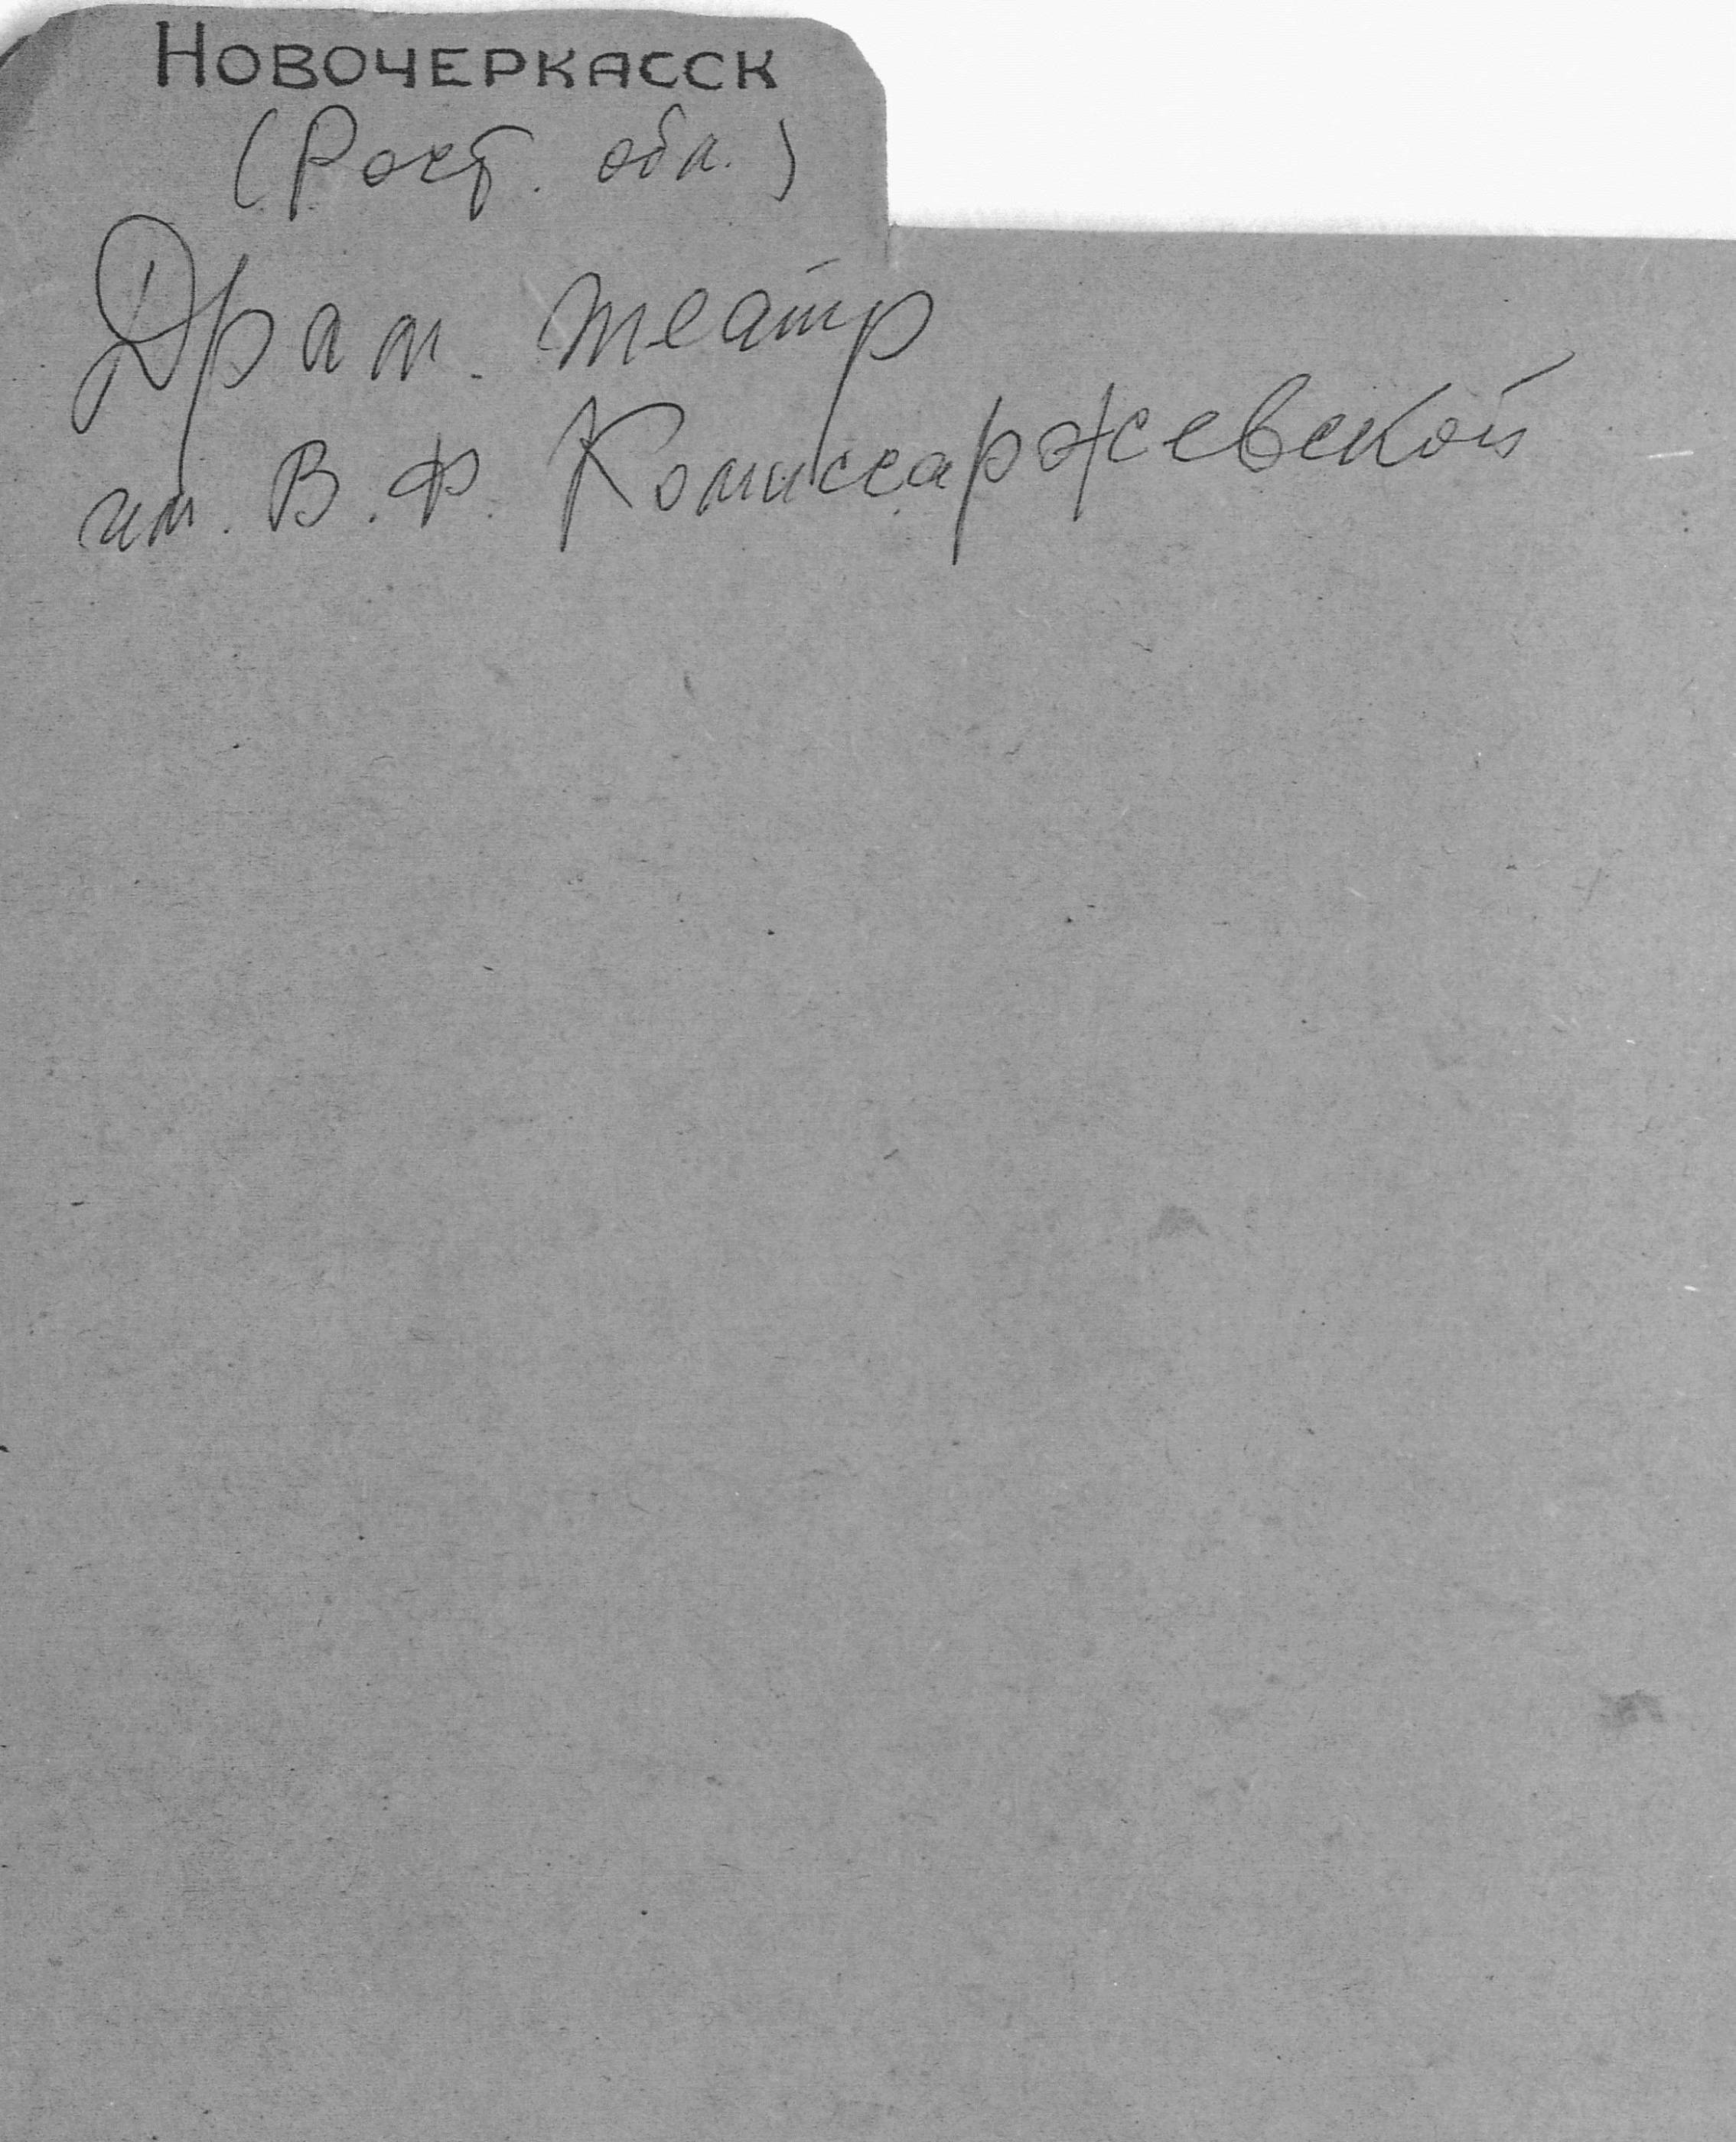 НОВОЧЕРКАССК
(Рост. обл.)
Драм. театр
им. В. Ф. Комиссаржевской